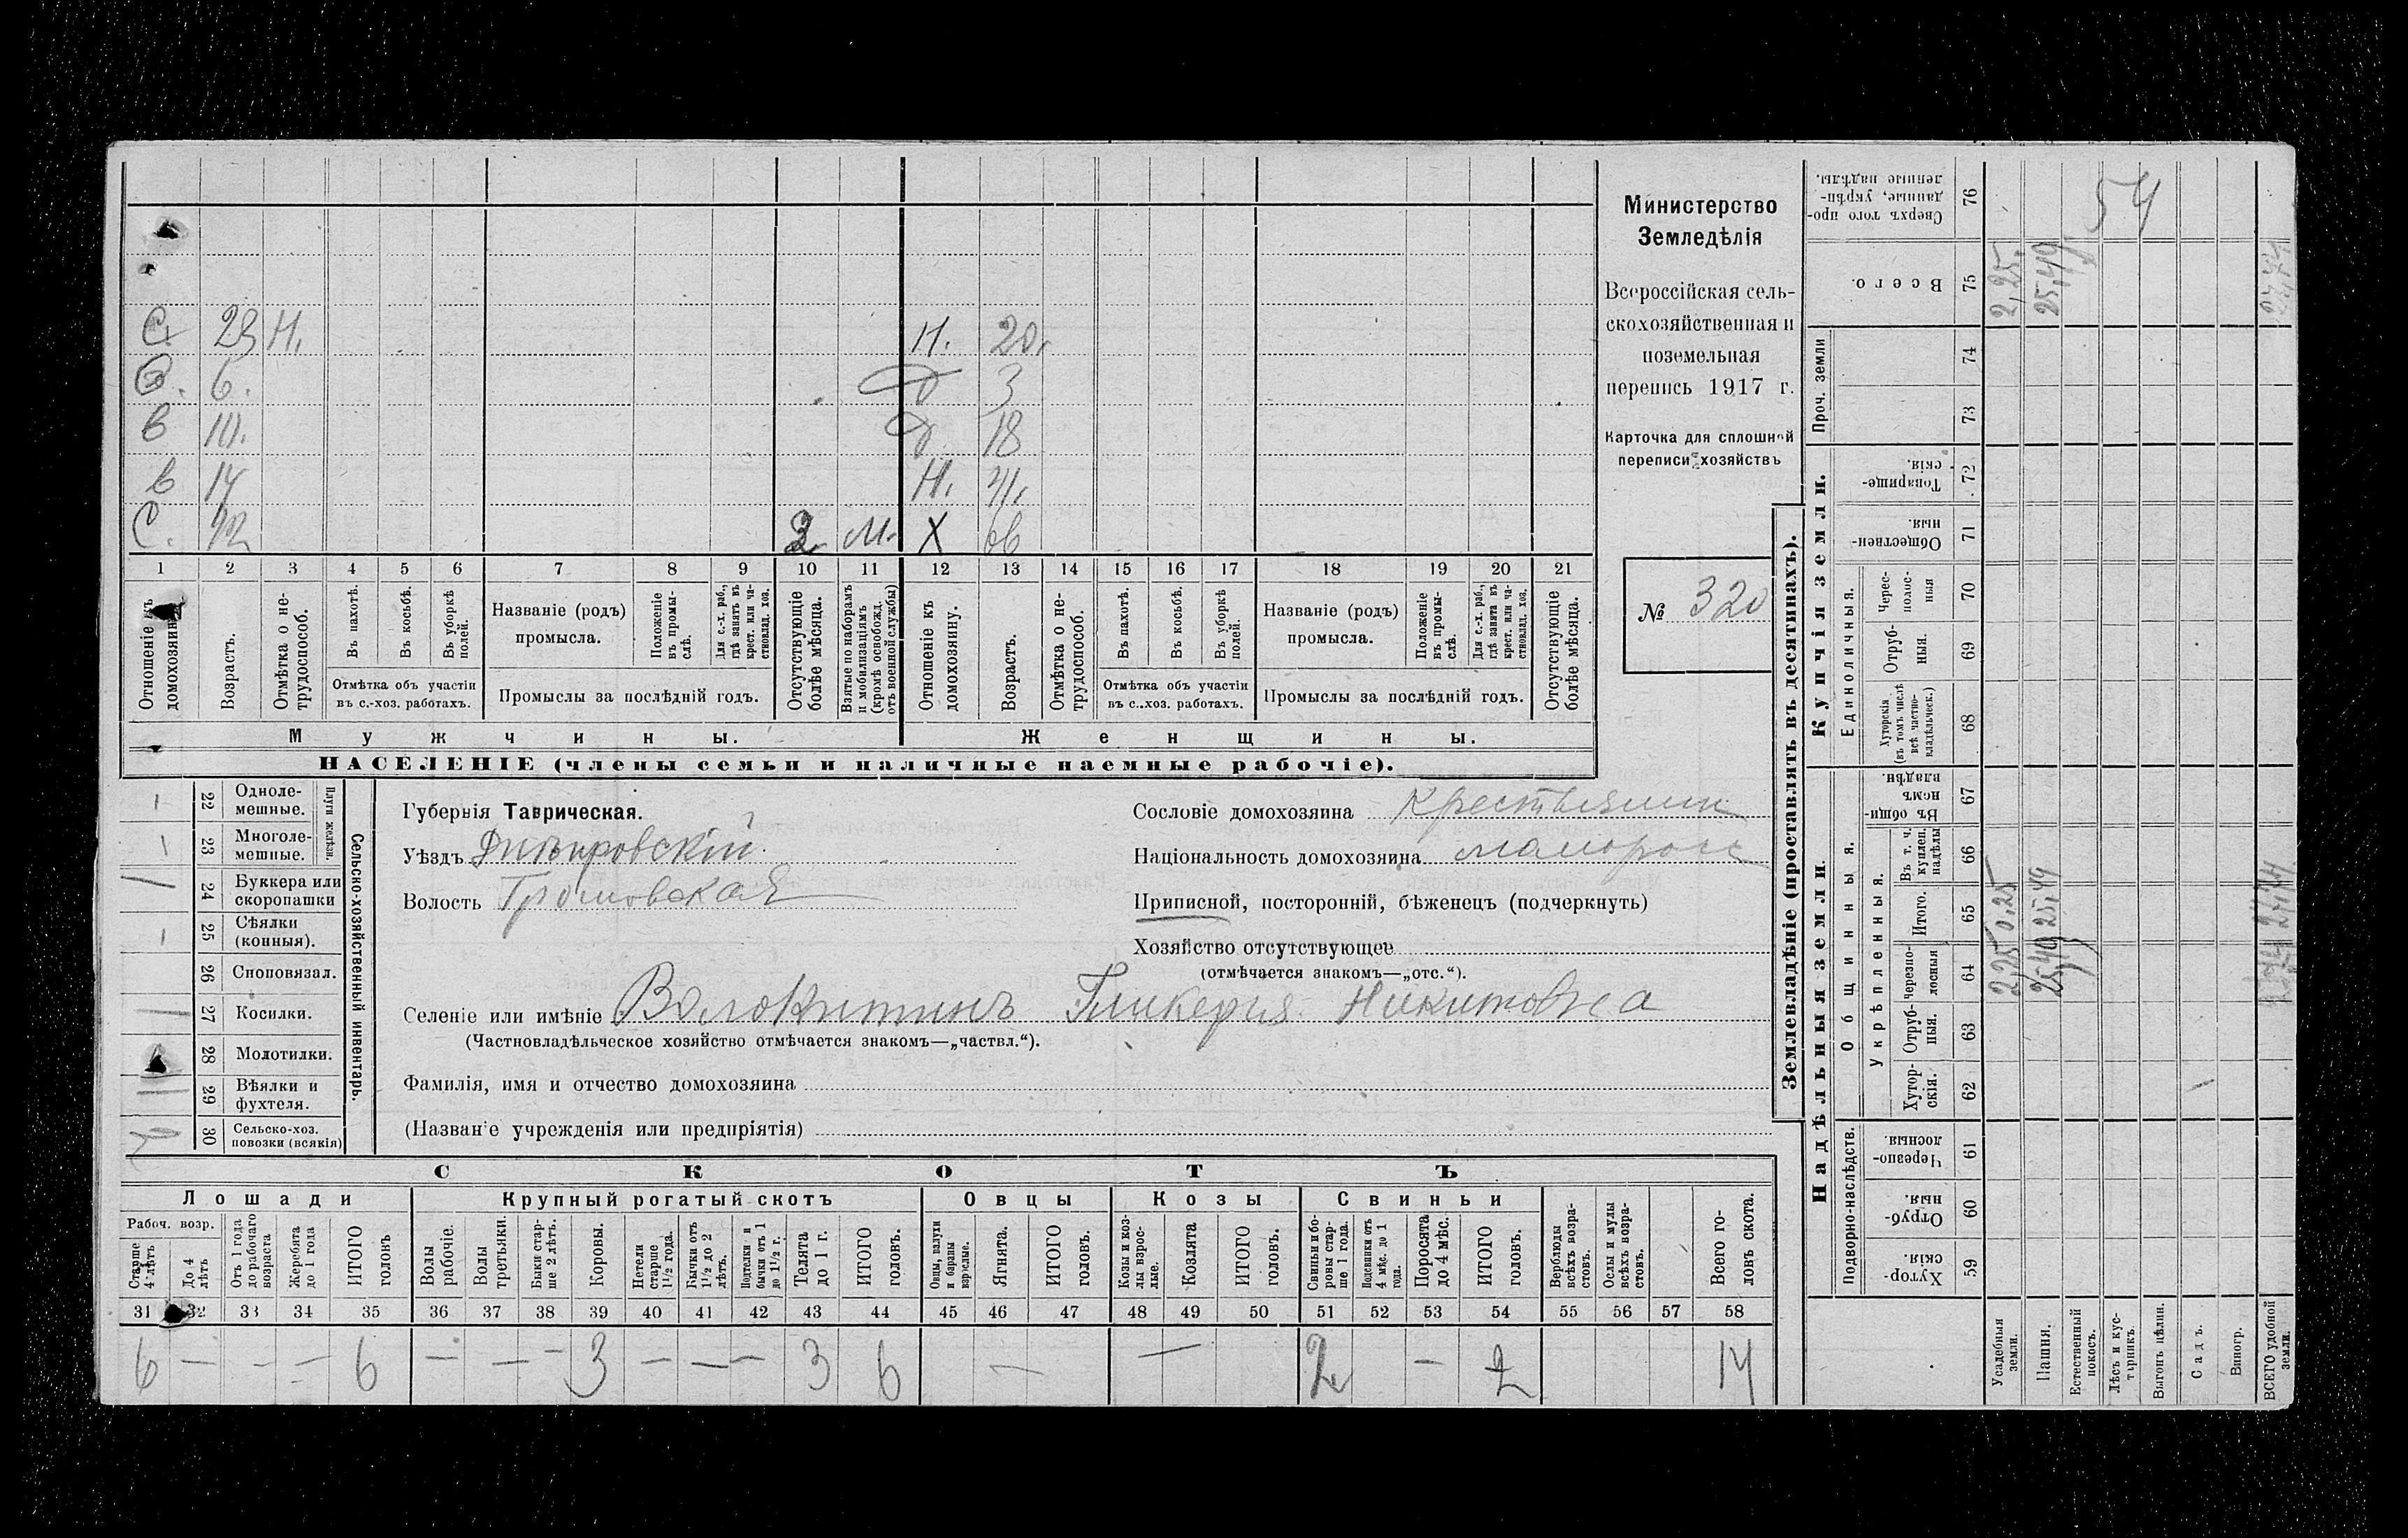 С. 23 Н. Н. 20.
6. д 3
в 10. д. 18
в 14 Н. 41.
С. 42 2 М. Х 66
1 2 3 4 5 6 7 8 9 10 11 12 13 14 15 16 17 18 19 20 21
Отношеніе къ домохозяину.
Возрастъ.
Отмѣтка о не-
трудоспособ.
Въ пахотѣ.
Въ косьбѣ.
Въ уборкѣ
полей.
Отмѣтка объ участіи
въ с.-хоз. работахъ.
Названіе (родъ)
промысла.
Положеніе
въ промы-
слѣ.
Для с.-х. раб.,
гдѣ занятъ въ
крест. или ча-
стновлад. хоз.
Промыслы за послѣдній годъ.
Отсутствующіе
болѣе мѣсяца.
Взятые по наборамъ
и мобилизаціямъ
(кромѣ освобожд.
отъ военной службы)
Отношеніе къ
домохозяину.
Возрастъ.
Отмѣтка о не-
трудоспособ.
Въ пахотѣ.
Въ косьбѣ.
Въ уборкѣ
полей.
Отмѣтка объ участіи
въ с..хоз. работахъ.
Названіе (родъ)
промысла.
Положеніе
въ промы-
слѣ.
Для с.-х. раб.,
гдѣ занята въ
крест. или ча-
стновлад. хоз.
Промыслы за послѣдній годъ.
Отсутствующіе
болѣе мѣсяца.
Мужчины.
Женщины.
НАСЕЛЕНІЕ (члены семьи и наличные наемные рабочіе).
Министерство
Земледѣлія
Всероссійская сель-
скохозяйственная и
поземельная
перепись 1917 г.
Карточка для сплошной
переписи хозяйствъ
№ 320
22 Одноле-
мешные.
23 Многоле-
мешные.
Плуги желѣзн.
24 Буккера или
скоропашки
25 Сѣялки
(конныя).
26 Сноповязал.
27 Косилки.
28 Молотилки.
29 Вѣялки и
фухтеля.
30 Сельско-хоз.
повозки (всякія)
Сельско-хозяйственный инвентарь.
Губернія Таврическая.
Уѣздъ Днѣпровскій
Волость Громовская
Сословіе домохозяина Крестьянин
Національность домохозяина малоросс
Приписной, посторонній, бѣженецъ (подчеркнуть)
Хозяйство отсутствующее
(отмѣчается знакомъ—„отс.“).
Селеніе или имѣніе Волокитинъ Гликерия Никитовна
(Частновладѣльческое хозяйство отмѣчается знакомъ—„частвл.“).
Фамилія, имя и отчество домохозяина
(Названіе учрежденія или предпріятія)
СКОТЪ
Лошади
Крупный рогатый скотъ
Овцы
Козы
Свиньи
Рабоч. возр.
Старше
4 лѣтъ
До 4
лѣтъ
Отъ 1 года
до рабочаго
возраста
Жеребята
до 1 года
ИТОГО
головъ
Волы
рабочіе.
Волы
третьяки.
Быки стар-
ше 2 лѣтъ.
Коровы.
Нетели
старше
1½ года.
Бычки отъ
1½ до 2
лѣтъ.
Подтелки и
бычки отъ 1
до 1½ г.
Телята
до 1 г.
ИТОГО
головъ.
Овцы, валухи
и бараны
взрослые.
Ягнята.
ИТОГО
головъ.
Козы и коз-
лы взрос-
лые.
Козлята
ИТОГО
головъ.
Свиньи и бо-
ровы стар-
ше 1 года.
Подсвинки отъ
4 мѣс. до 1
года.
Поросята
до 4 мѣс.
ИТОГО
головъ.
Верблюды
всѣхъ возра-
стовъ.
Ослы и мулы
всѣхъ возра-
стовъ.
Всего го-
ловъ скота.
31 32 33 34 35 36 37 38 39 40 41 42 43 44 45 46 47 48 49 50 51 52 53 54 55 56 57 58
6 — — — 6 — — — 3 — — — 3 6 — — 2 — 2 14
Землевладѣніе (проставлять въ десятинахъ).
Купчія земли.
Надѣльныя земли.
Проч. земли
Единоличныя.
Общинныя.
Укрѣпленныя.
Подворно-наслѣдств.
Сверхъ того про-
данные, укрѣп-
ленные надѣлы.
76
54
Всего.
75
2,25
25,49
27,74
74
73
Товарище-
скія.
72
Обществен-
ныя.
71
Черес-
полос-
ныя
70
Отруб-
ныя.
69
Хуторскія
(въ томъ числѣ
всѣ частно-
владѣльческ.)
68
Въ общи-
номъ
владѣн.
67
Въ т. ч.
куплен.
надѣлы
66
Итого.
65
Черезпо-
лосныя
64
Отруб-
ныя.
63
Хутор-
скія.
62
Черезпо-
лосныя.
61
Отруб-
ныя.
60
Хутор-
скія.
59
Усадебныя
земли.
Пашня.
Естественный
покосъ.
Лѣсъ и кус-
тарникъ.
Выгонъ цѣлин.
Садъ.
Виногр.
ВСЕГО удобной
земли.